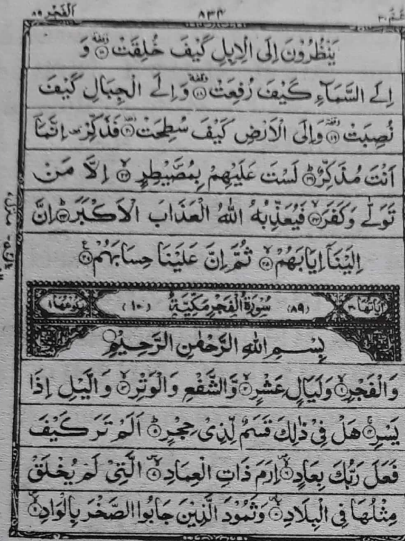 عَمَّ ٣٠ ٨٣٤ اَلْفَجْر ٨٩
يَنْظُرُوْنَ اِلَى الْاِبِلِ كَيْفَ خُلِقَتْ ۝١٧ وَ
اِلَى السَّمَآءِ كَيْفَ رُفِعَتْ ۝١٨ وَاِلَى الْجِبَالِ كَيْفَ
نُصِبَتْ ۝١٩ وَاِلَى الْاَرْضِ كَيْفَ سُطِحَتْ ۝٢٠ فَذَكِّرْ اِنَّمَآ
اَنْتَ مُذَكِّرٌ ۝٢١ لَسْتَ عَلَيْهِمْ بِمُصَۜيْطِرٍ ۝٢٢ اِلَّا مَنْ
تَوَلّٰى وَكَفَرَ ۝٢٣ فَيُعَذِّبُهُ اللّٰهُ الْعَذَابَ الْاَكْبَرَ ۝٢٤ اِنَّ
اِلَيْنَآ اِيَابَهُمْ ۝٢٥ ثُمَّ اِنَّ عَلَيْنَا حِسَابَهُمْ ۝٢٦
اٰيَاتُهَا ٣٠ (٨٩) سُوْرَةُ الْفَجْرِ مَكِّيَّةٌ (١٠) رُكُوْعُهَا ١
بِسْمِ اللّٰهِ الرَّحْمٰنِ الرَّحِيْمِ
وَالْفَجْرِ ۝١ وَلَيَالٍ عَشْرٍ ۝٢ وَّالشَّفْعِ وَالْوَتْرِ ۝٣ وَالَّيْلِ اِذَا
يَسْرِ ۝٤ هَلْ فِيْ ذٰلِكَ قَسَمٌ لِّذِيْ حِجْرٍ ۝٥ اَلَمْ تَرَ كَيْفَ
فَعَلَ رَبُّكَ بِعَادٍ ۝٦ اِرَمَ ذَاتِ الْعِمَادِ ۝٧ الَّتِيْ لَمْ يُخْلَقْ
مِثْلُهَا فِي الْبِلَادِ ۝٨ وَثَمُوْدَ الَّذِيْنَ جَابُوا الصَّخْرَ بِالْوَادِ ۝٩